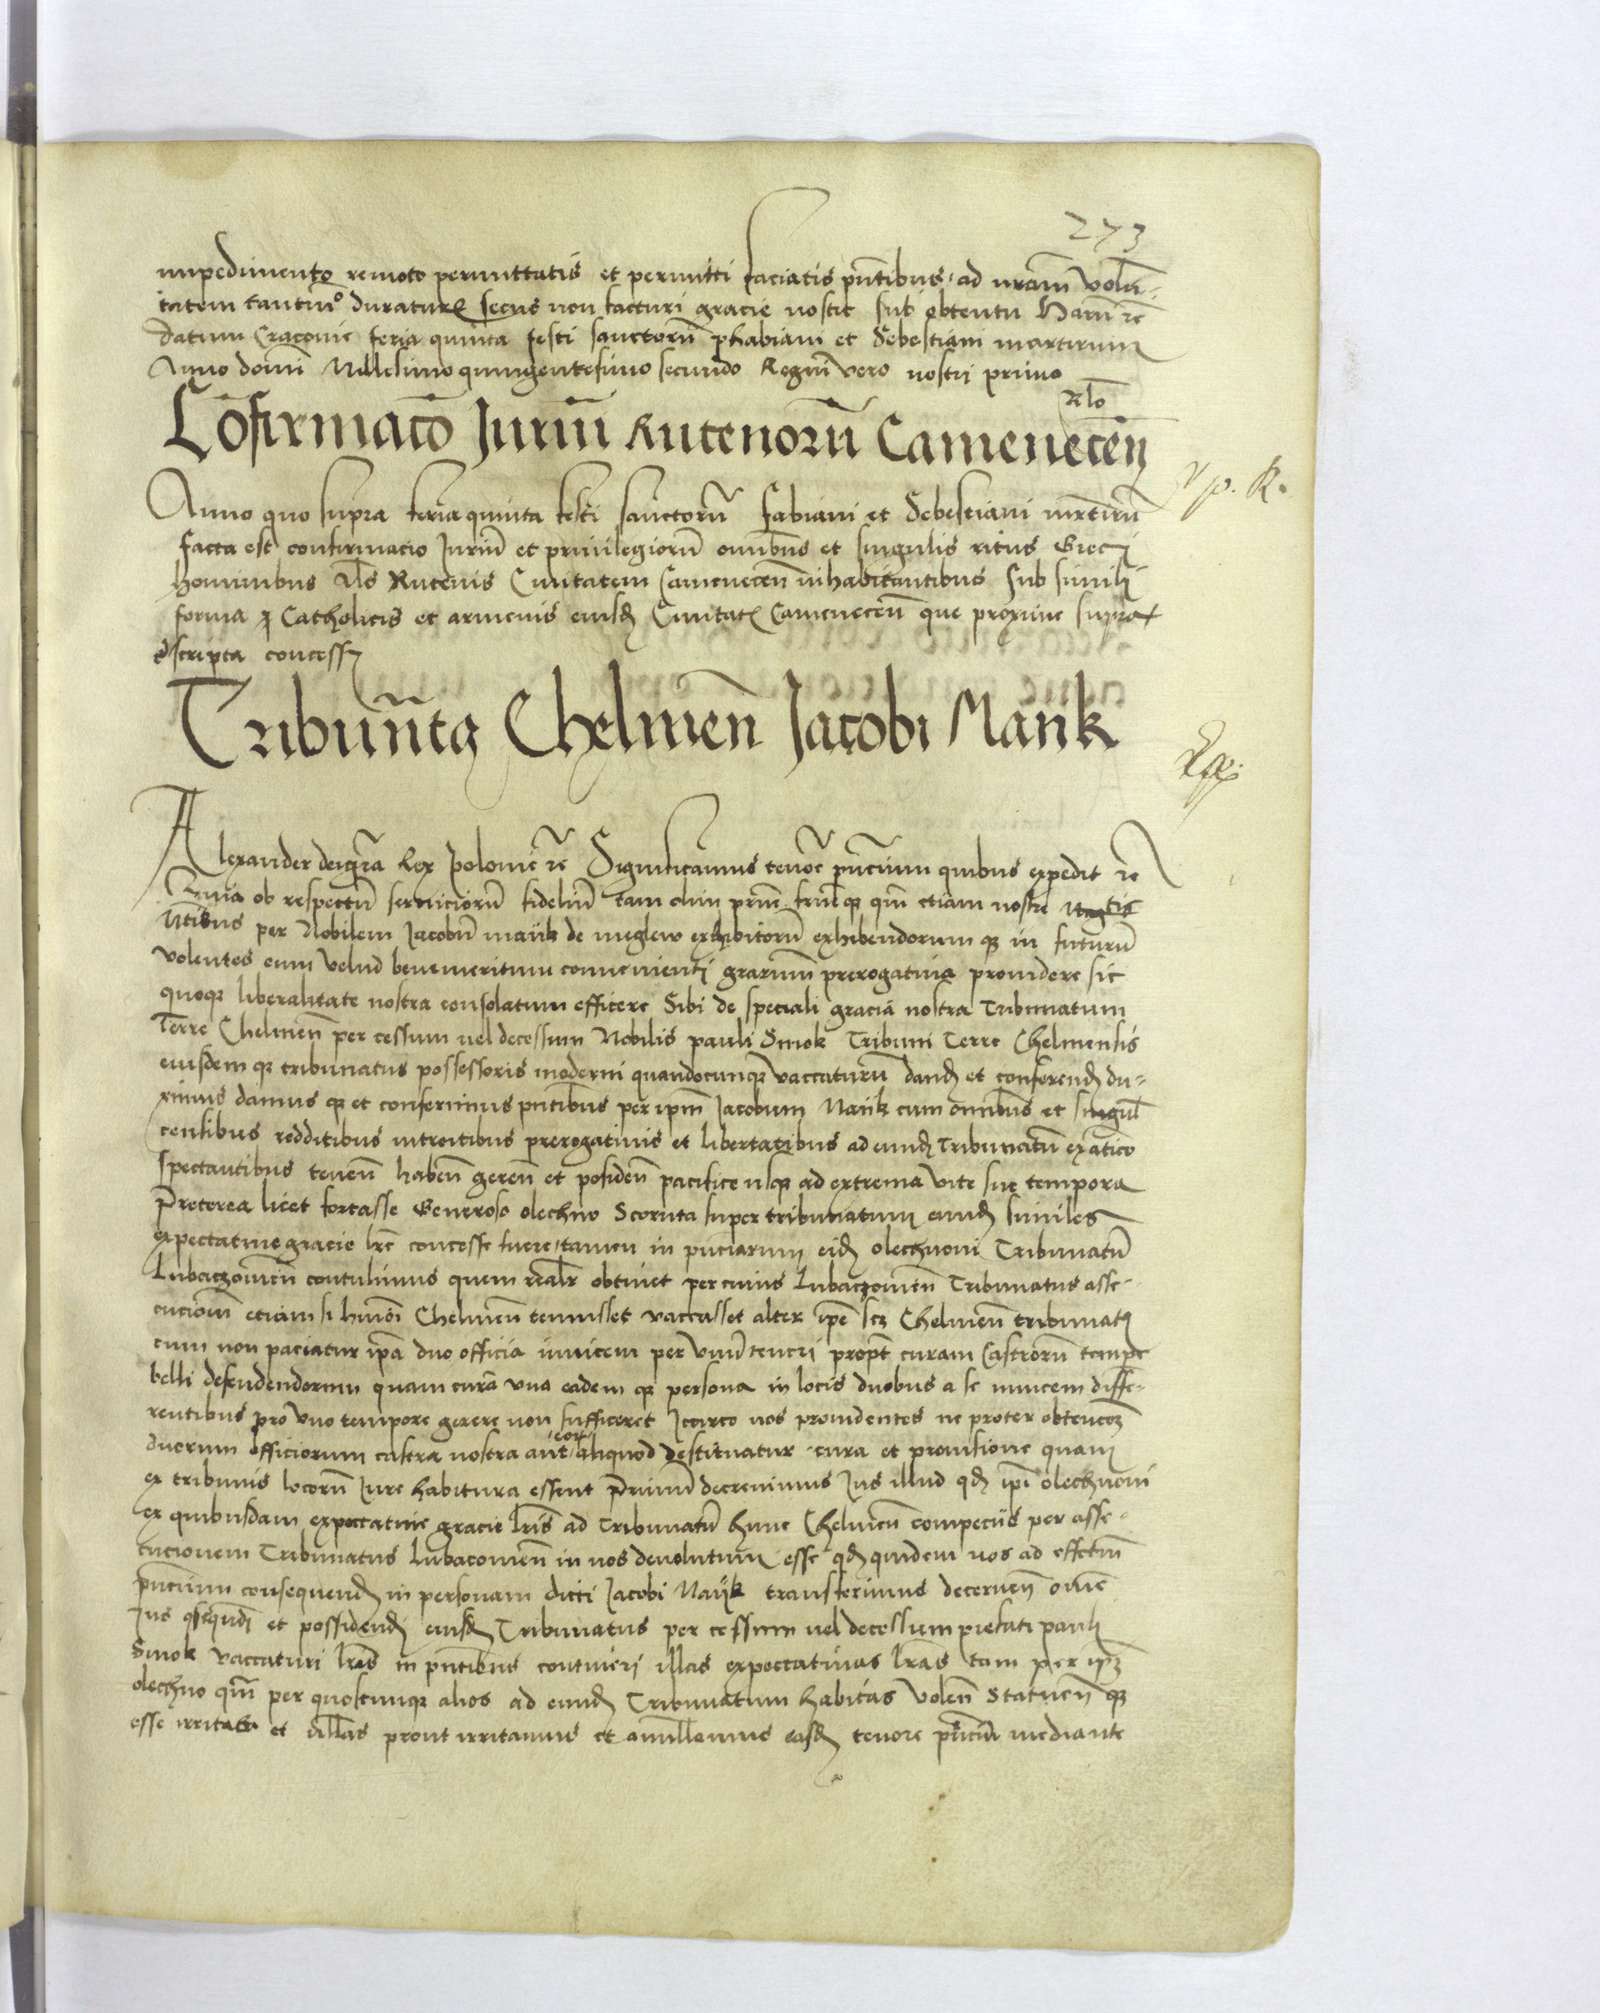 273
impedimento remoto permittatis et permitti faciatis pñtibus ad nram̃ volũ-
tatem tantũmo duratur secus non facturi gracie nostre sub obtentu Harũ rc̃
datum Cracovie feria quinta festi sanctorũ phabiani et Sebestiani martirum
Anno domĩ Millesimo quingentesimo secundo Regnĩ vero nostri primo
Rlo
Cõfirmaco Juriũ Rutenorũ Camenecen̄
Anno quo supra feria quinta festi sanctorũ Fabiani et Sebestiani mr̃tirũ
facta est confirmacio Juriũ et privilegiorũ omĩbus et singulis ritus Greci
hominibus als Rutenis Civitatem Camenecen̄ inhabitantibus sub simili
forma Catholicis et armenis eiusd Civitat Camenecen̄ que proxime supra
scripta concess
Tribunat Chelmen̄ Jacobi Mank
Alexander dei gr̃a Rex Polonie rc̃ Significamus tenor̃ pñcium quibus expedit rc̃
Quia ob respectũ serviciorũ fidelium tam olim frũ qm̃ etiam nostre
per Nobilem Jacobũ maijk de meglew exhibitorũ exhibendorum q in futurũ
volentes eum velud benemeritum convenienti grarum̃ prerogativa providere sic
quoq liberalitate nostra consolatum efficere Sibi de speciali gracia nostra Tribunatum
Terre Chelmen̄ per cessum vel decessum Nobilis pauli Smok Tribuni Terre Chelmensis
eiusdem q tribunatus possessoris moderni quandocunq vaccaturũ dand et conferend du-
ximus damus q et conferimus pñtibus per ipm̃ Jacobum Maijk cum omĩbus et singul
censibus redditibus introitibus prerogativis et libertatibus ad eund Tribunatũ ex antiq̃o
spectantibus tenen̄ haben̄ geren̄ et posiden̄ pacifice usq ad extrema vite sue tempora
Preterea licet fortasse Generoso olechno Scoruta super tribunatum eund similes
expectative gracie lr̃e concesse fuere tamen in punciarum eid olechnoni Tribunatũ
Lubaczowien̄ contulimus quem realr̃ obtinet per cuius Lubaczowien̄ Tribunatus asse-
cucionem etiam si hmõi Chelmen̄ tenuisset vaccasset alter ip̃e scz Chelmen̄ tribunat
cum non paciatur ip̃a duo officia invicem per unũ teneri propt̃ curam Castrorũ tempe
belli defendendorum quam curã una eadem q persona in locis duobus a se invicem diffe-
rentibus pro uno tempore gerere non sufficeret Iccirco nos providentes ne propter obtencoẽ
duorum officiorum castra nostra aut eor̃ aliquod destituatur cura et provisione quam
ex tribunis locorũ Jure habitura essent Primũ decrevimus Jus illud qd ip̃i olechnoni
ex quibusdam expectative gracie lr̃is ad Tribunatũ hunc Chelmen̄ compeciis per asse-
cucionem Tribunatus Lubacovien̄ in nos devolutum esse qd quidem nos ad effectũ
pñcium consequend in personam dicti Jacobi Maijk transferimus decernen̄ omẽ
Jus ꝯsequendi et possidendi eiusd Tribunatus per cessum vel decessum prefati pauli
Smok vaccaturi lr̃is in pñtibus contineri illas expectativas lr̃as tam per ipm̃
olechno qm̃ per quoscunq alios ad eund Tribunatum habitas volen̄ Statuen̄ q
esse irritas et nullas prout irritamus et annullamus easd tenore pñcium mediante